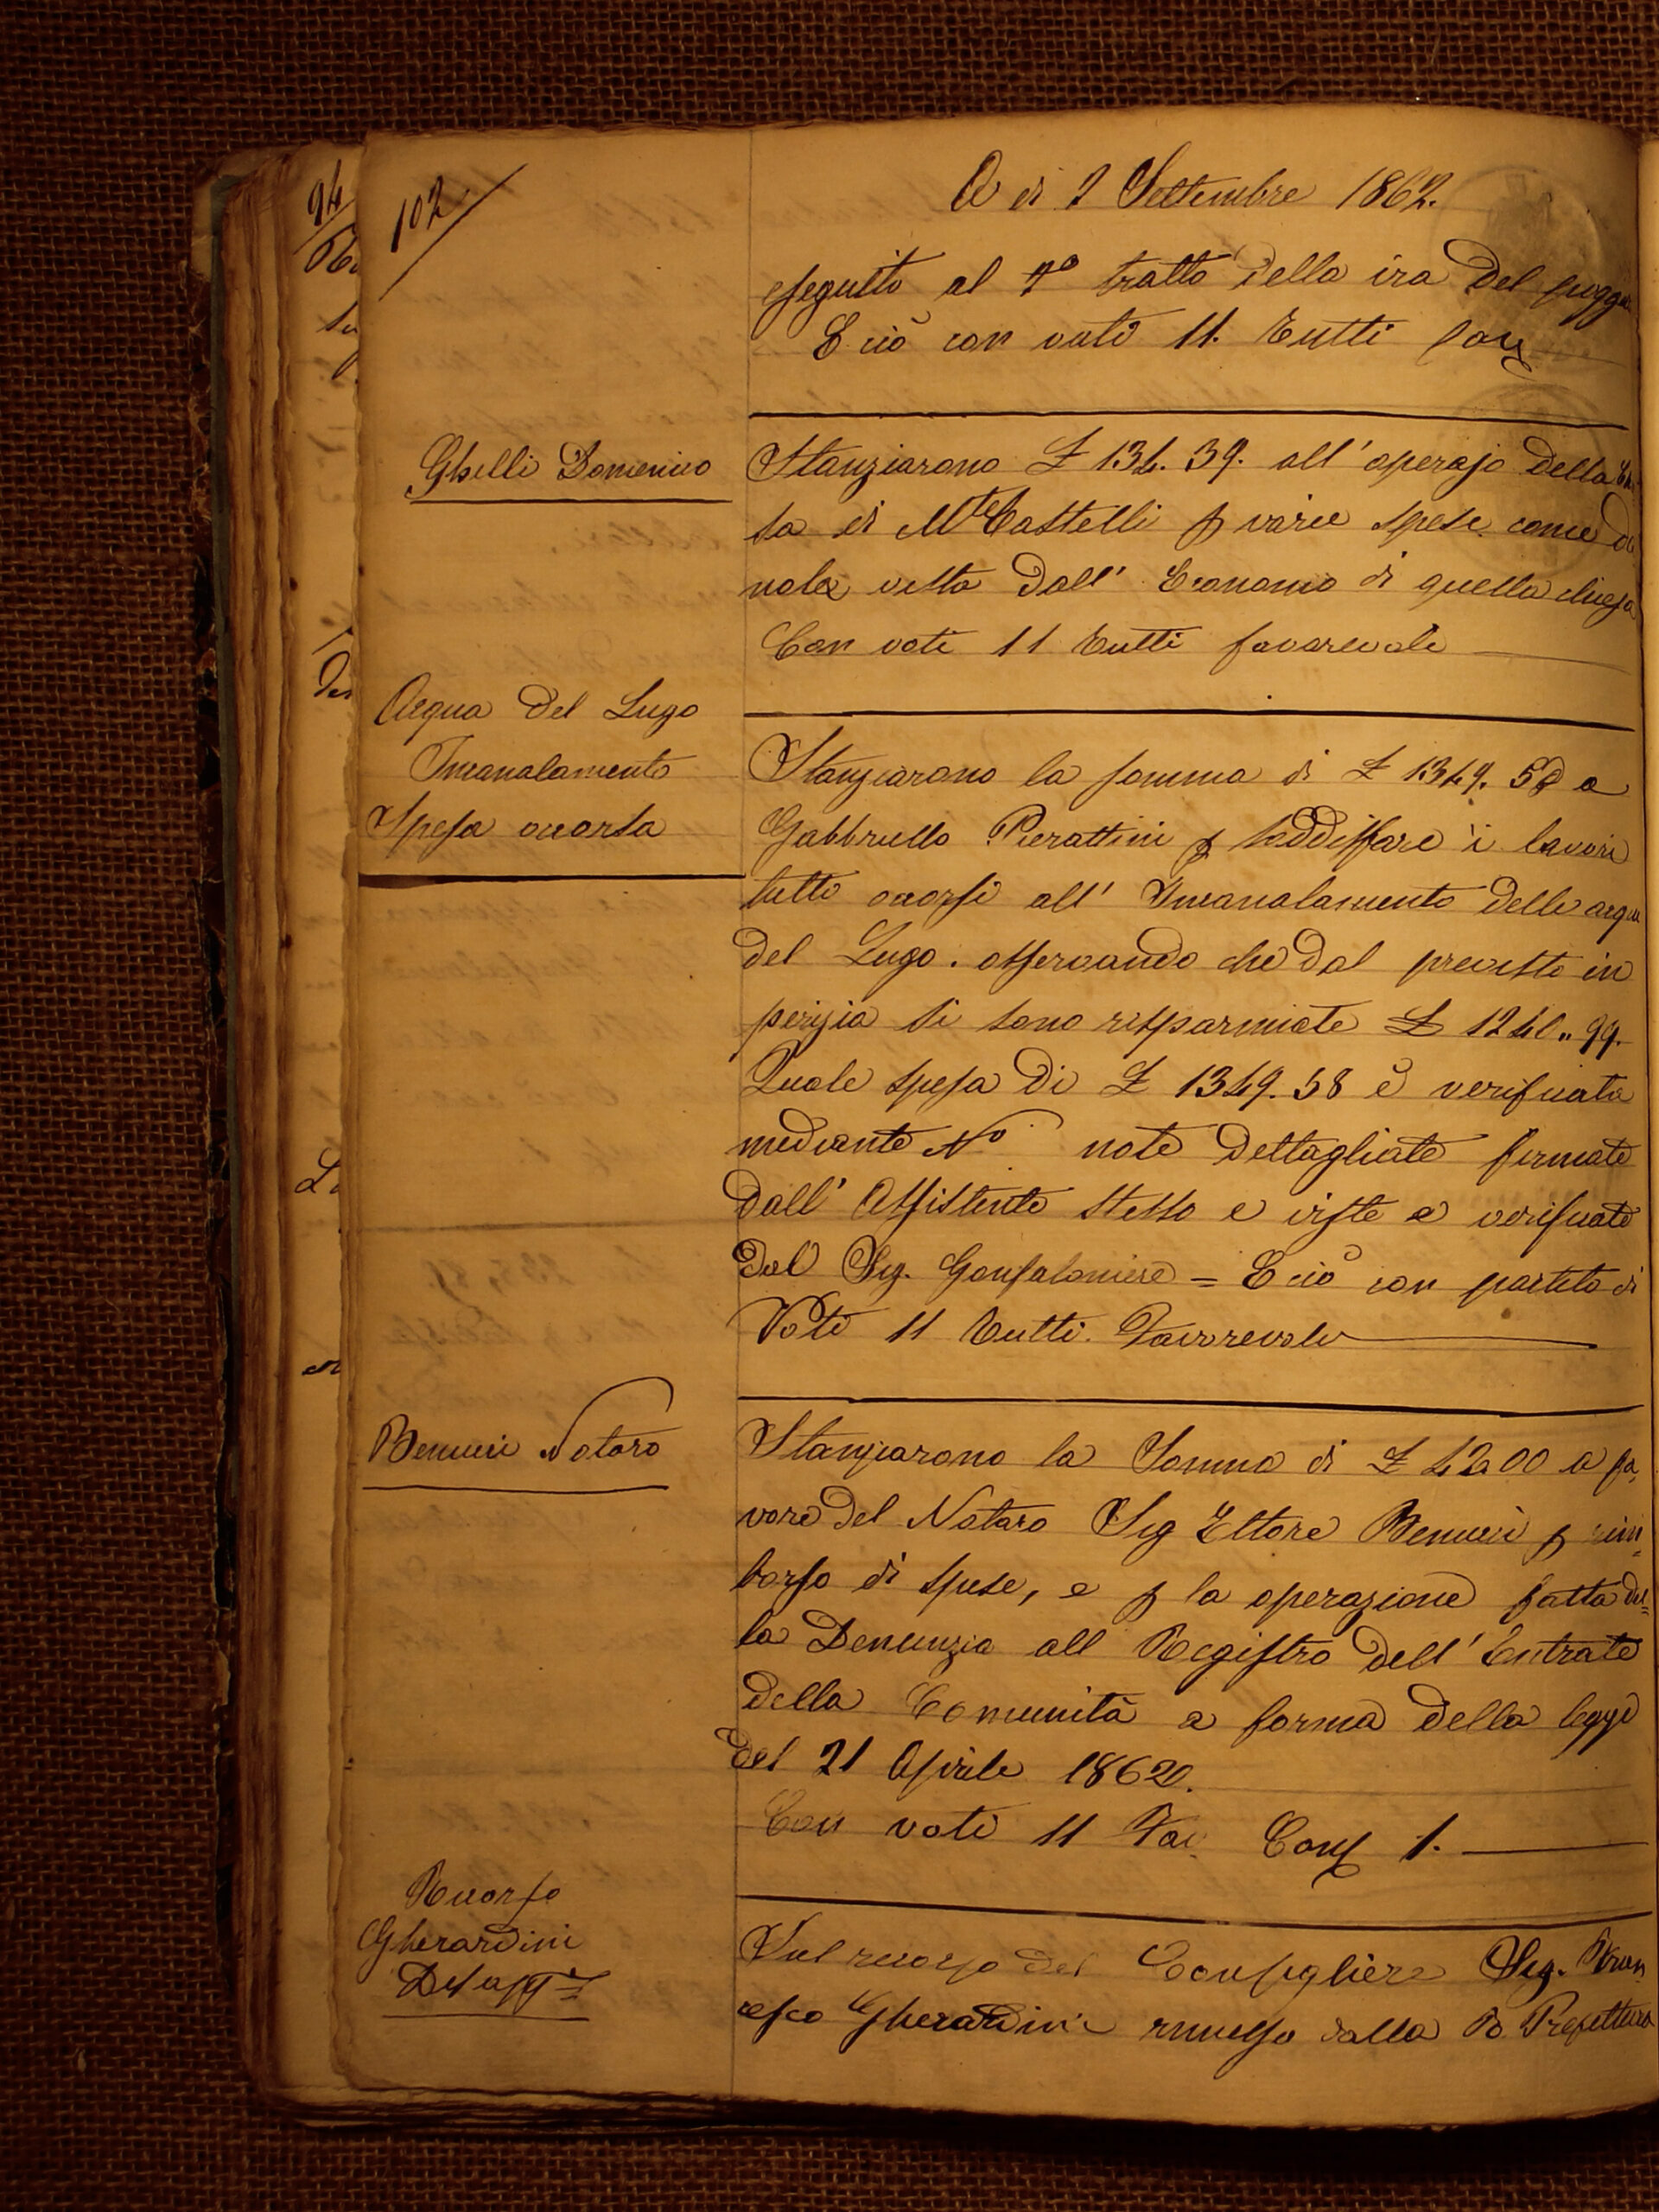 94
102
A dì 2 Settembre 1862.
eseguito al 7º tratto della via del
E ciò con voti 11. Tutti fav
Ghelli Domenico
Stanziarono £ 134. 39. all' operajo della
sa di Mte Castelli p varie spese come da
nota vista dall' Economo di quella chiesa
Con voti 11 tutti favorevoli
Acqua del Lugo
Incanalamento
Spesa occorsa
Stanziarono la somma di £ 1349. 58 a
Gabbriello Pierattini p soddisfare i lavori
tutti occorsi all' Incanalamento delle acque
del Lugo. osservando che dal previsto in
perizia si sono risparmiate £ 1240.. 99.
Quale spesa di £ 1349. 58 è verificata
mediante Nº note dettagliate firmate
dall' Assistente stesso e viste e verificate
dal Sig. Gonfaloniere = E ciò con partito di
Voti 11 tutti. Favorevoli
Benucci Notaro
Stanziarono la Somma di £ 42.00 a fa,
vore del Notaro Sig Ettore Benucci p rim=
borso di spese, e p la operazione fatta del=
la Denunzia all Registro dell' Entrate
della Comunità a forma della legge
del 21 Aprile 1862.
Con voti 11 Fav. Cont 1.
Ricorso
Gherardini
Sul ricorso del Consigliere Sig. Fran
cesco Gherardini rimesso dalla R. Prefettura